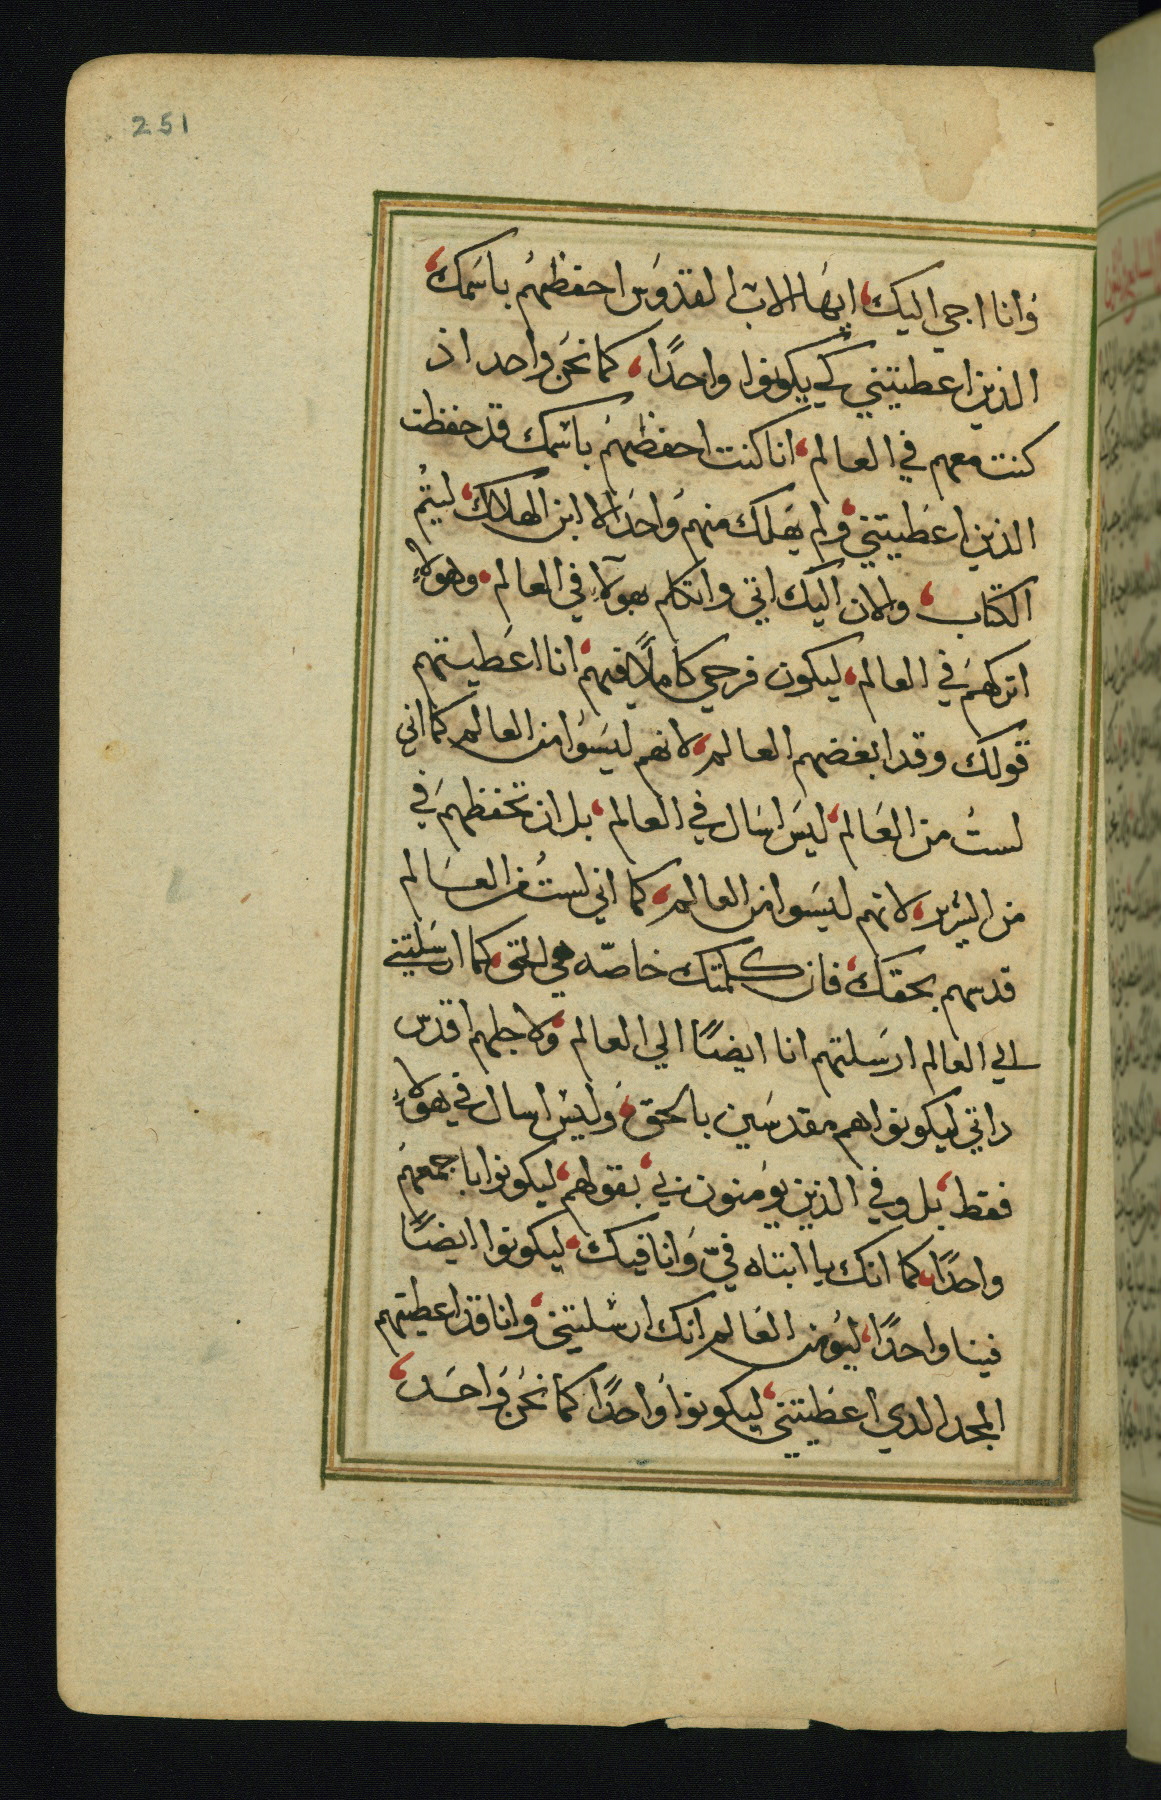 251
وانا اجي اليك، ايها الاب القدوس احفظهم باسمك،
الذين اعطيتني كي يكونوا واحدًا، كما نحن واحد اذ
كنت معهم في العالم، انا كنت احفظهم باسمك قد حفظت
الذين اعطيتني، ولم يهلك منهم واحدًا الا ابن الهلاك، ليتم
الكتاب، والان اليك اتي واتكلم بهولآءِ في العالم، وهولاءِ
اتركهم في العالم، ليكون فرحي كاملًا فيهم، انا اعطيتهم
قولك وقد ابغضهم العالم، لانهم ليسوا من العالم كما اني
لستُ من العالم، ليس اسال في العالم، بل ان تحفظهم في
من الشرير، لانهم ليسوا من العالم، كما اني لستُ من العالم
قدسهم بحقك، فان كلمتك خاصّه هي الحق، كما ارسلتني
الي العالم ارسلتهم انا ايضًا الي العالم، ولاجلهم اقدس
داتي ليكونوا هم مقدسين بالحق، وليس اسال في هولاءِ
فقط، بل وفي الذين يومنون بي، بقولهم، ليكونوا باجمعهم
واحدًا، كما انك يا ابتاه فيّ وانا فيك، ليكونوا ايضًا
فينا واحدًا، ليؤمن العالم انك ارسلتني، وانا قد اعطيتهم
المجد الدي اعطيتني، ليكونوا واحدًا كما نحن واحد،